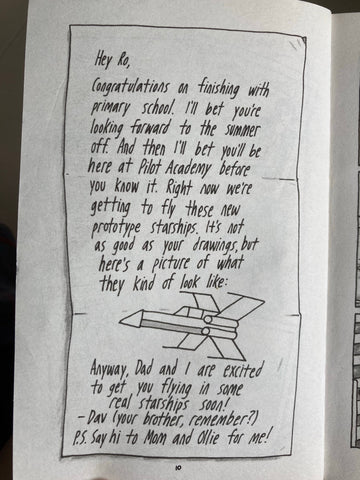 Hey Ro,
Congratulations on finishing with
primary school. I'll bet you're
looking forward to the summer
off. And then I'll bet you'll be
here at Pilot Academy before
you know it. Right now we're
getting to fly these new
prototype starships. It's not
as good as your drawings, but
here's a picture of what
they kind of look like:
Anyway, Dad and I are excited
to get you flying in some
real starships soon!
- Dav (your brother, remember?)
P.S. Say hi to Mom and Ollie for me!
10